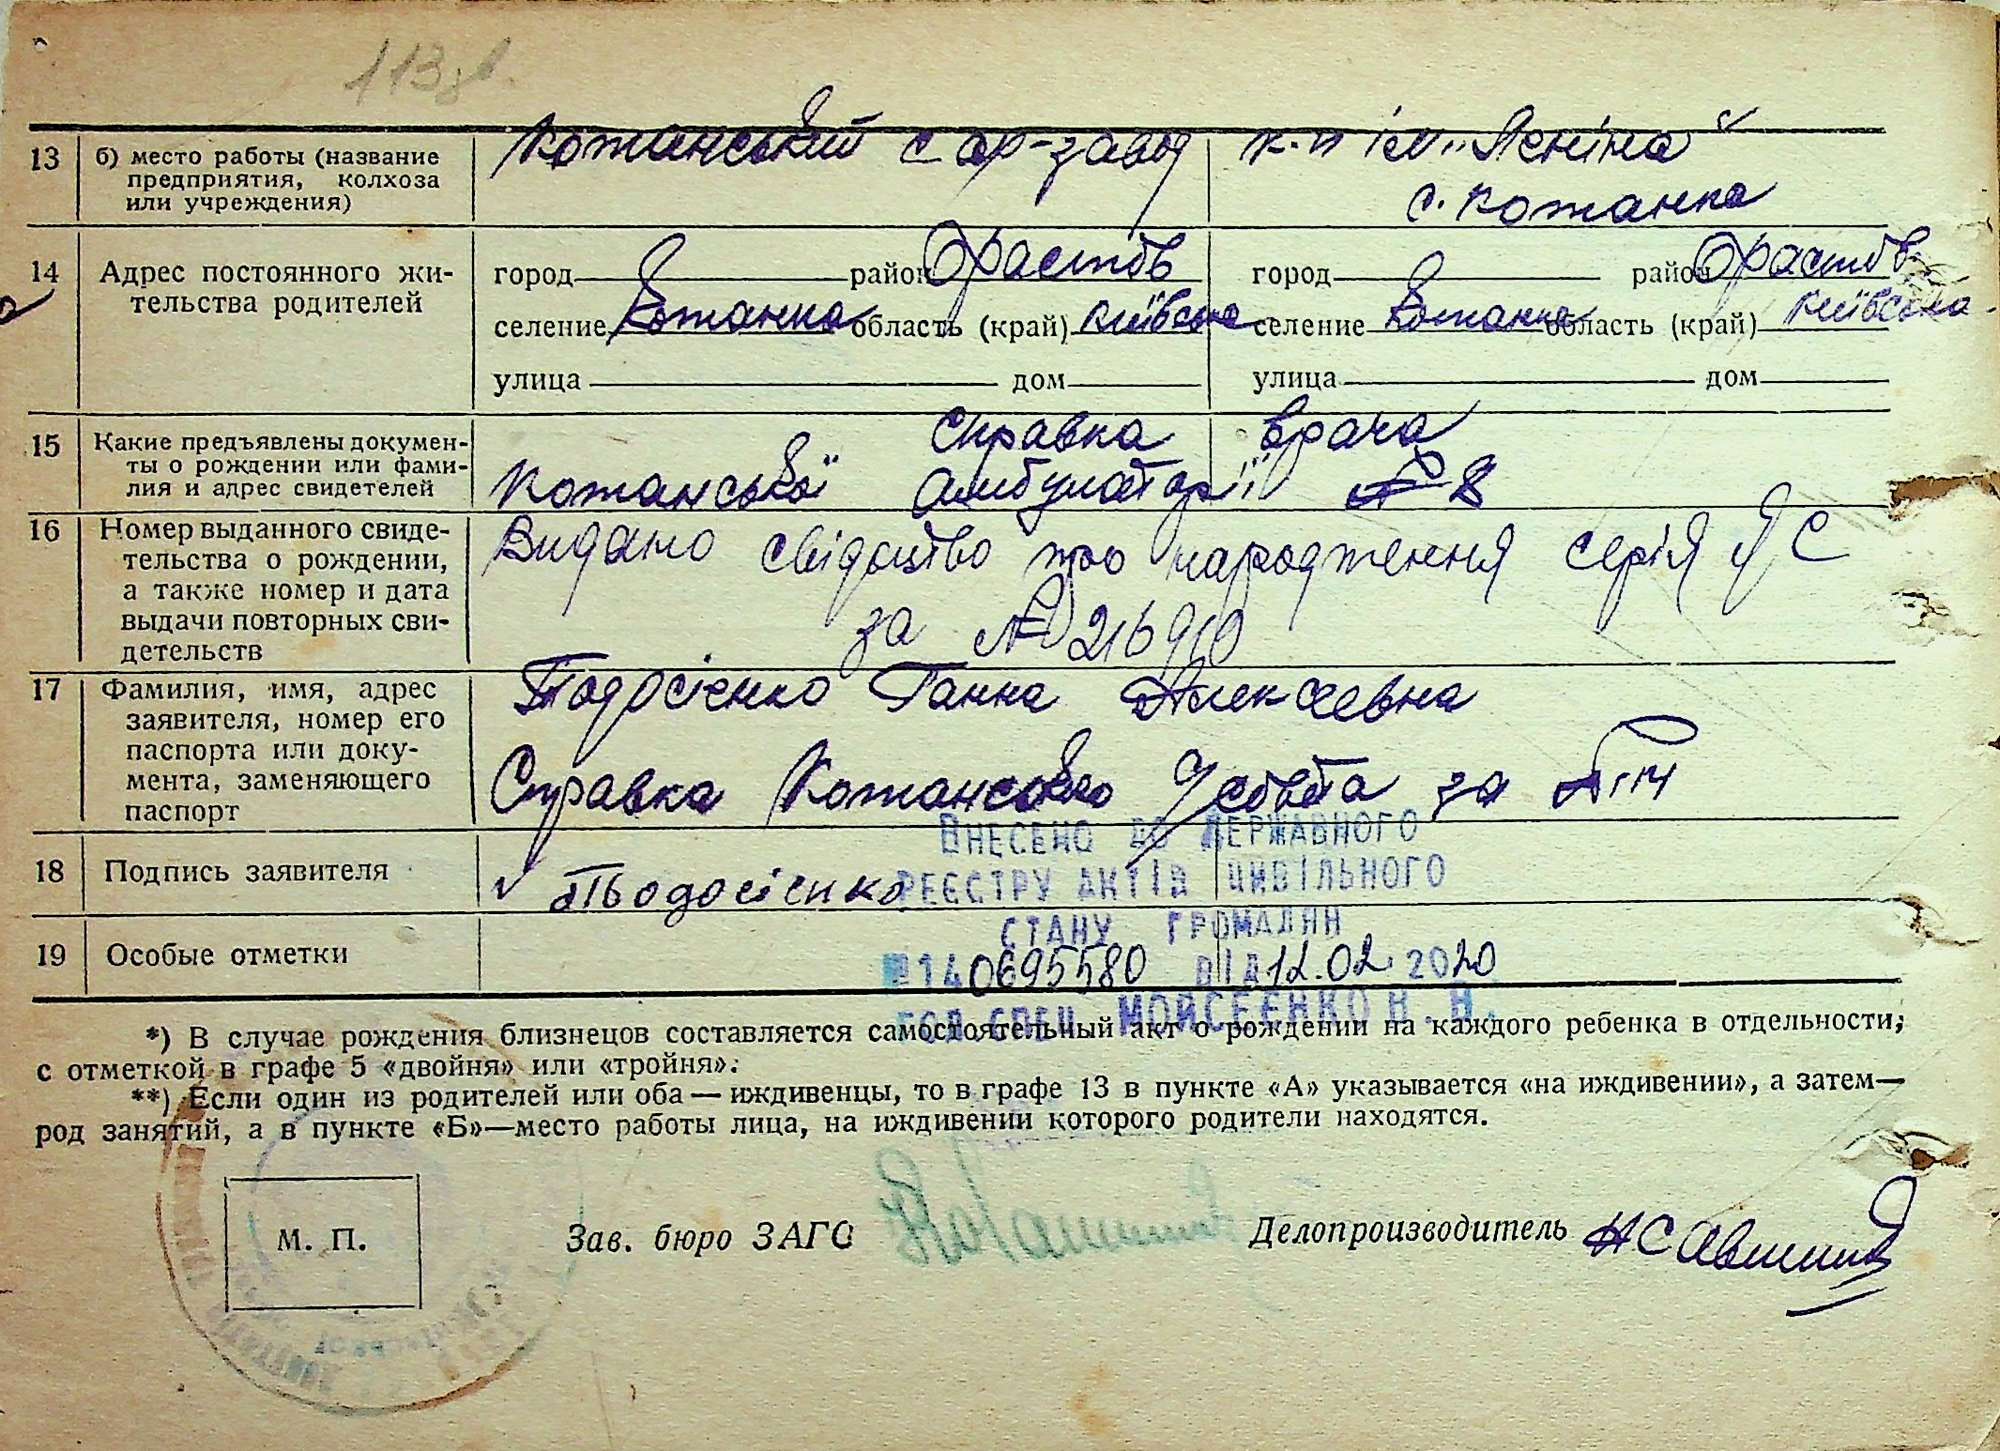 113
13 б) место работы (название предприятия, колхоза или учреждения) Кожанський сах-завод к-п ім. „Леніна"
с. Кожанка
14 Адрес постоянного жительства родителей город район Фастів город район Фастів
селение Кожанка область (край) Київська селение Кожанка область (край) Київська
улица дом улица дом
15 Какие предъявлены документы о рождении или фамилия и адрес свидетелей Справка врача
Кожанської амбулаторії № 8
16 Номер выданного свидетельства о рождении, а также номер и дата выдачи повторных свидетельств Видано свідоцтво про народження серія ЯС
за № 216910
17 Фамилия, имя, адрес заявителя, номер его паспорта или документа, заменяющего паспорт Тодосієнко Ганна Алексеевна
Справка Кожанского за №
ВНЕСЕНО ДО ДЕРЖАВНОГО
18 Подпись заявителя Тодосієнко
РЕЄСТРУ АКТІВ ЦИВІЛЬНОГО
СТАНУ ГРОМАДЯН
19 Особые отметки
№ 140695580 ВІД 12.02 2020
ГОЛ.СПЕЦ. МОЙСЕЄНКО Н. В.
*) В случае рождения близнецов составляется самостоятельный акт о рождении на каждого ребенка в отдельности,
с отметкой в графе 5 «двойня» или «тройня».
**) Если один из родителей или оба — иждивенцы, то в графе 13 в пункте «А» указывается «на иждивении», а затем—
род занятий, а в пункте «Б»—место работы лица, на иждивении которого родители находятся.
М. П. Зав. бюро ЗАГС Делопроизводитель